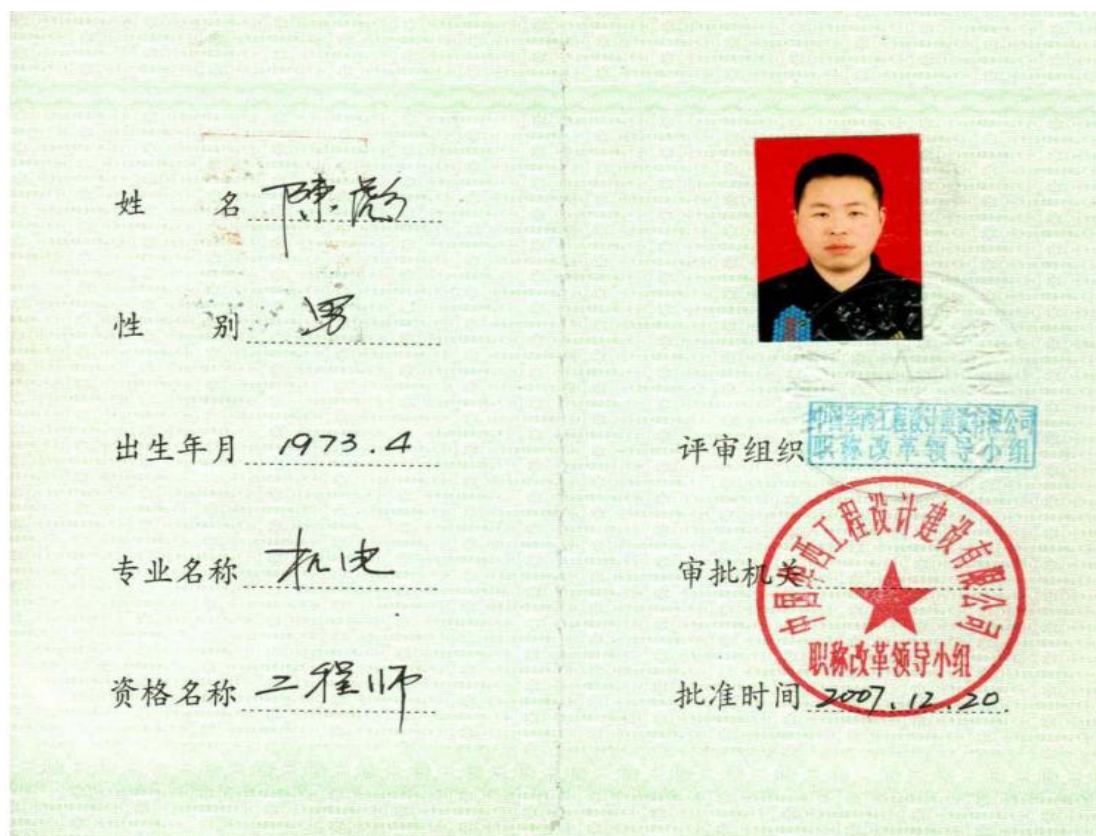 姓 名 陈彪
性 别 男
出生年月 1973.4
专业名称 机电
资格名称 工程师
中国华西工程设计建设有限公司
评审组织 职称改革领导小组
中国华西工程设计建设有限公司
审批机关
职称改革领导小组
批准时间 2007.12.20